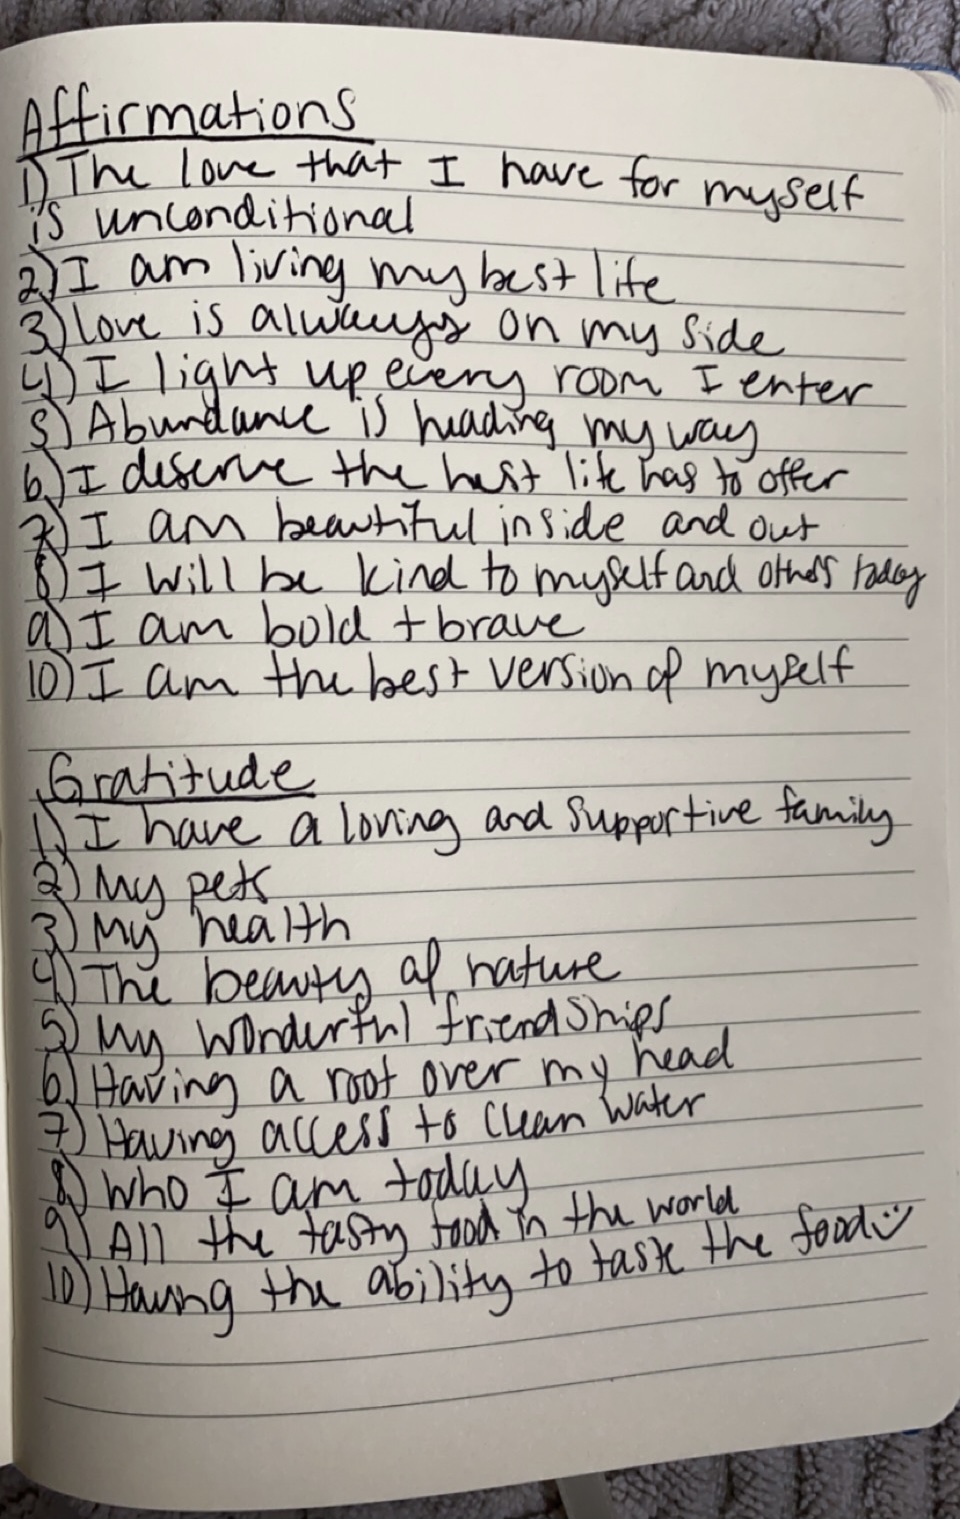 Affirmations
1) The love that I have for myself
is unconditional
2) I am living my best life
3) love is always on my side
4) I light up every room I enter
5) Abundance is heading my way
6) I deserve the best life has to offer
7) I am beautiful inside and out
8) I will be kind to myself and others today
9) I am bold + brave
10) I am the best version of myself
Gratitude
1) I have a loving and supportive family
2) My pets
3) My health
4) The beauty of nature
5) My wonderful friendships
6) Having a roof over my head
7) Having access to clean water
8) Who I am today
9) All the tasty food in the world
10) Having the ability to taste the food :)